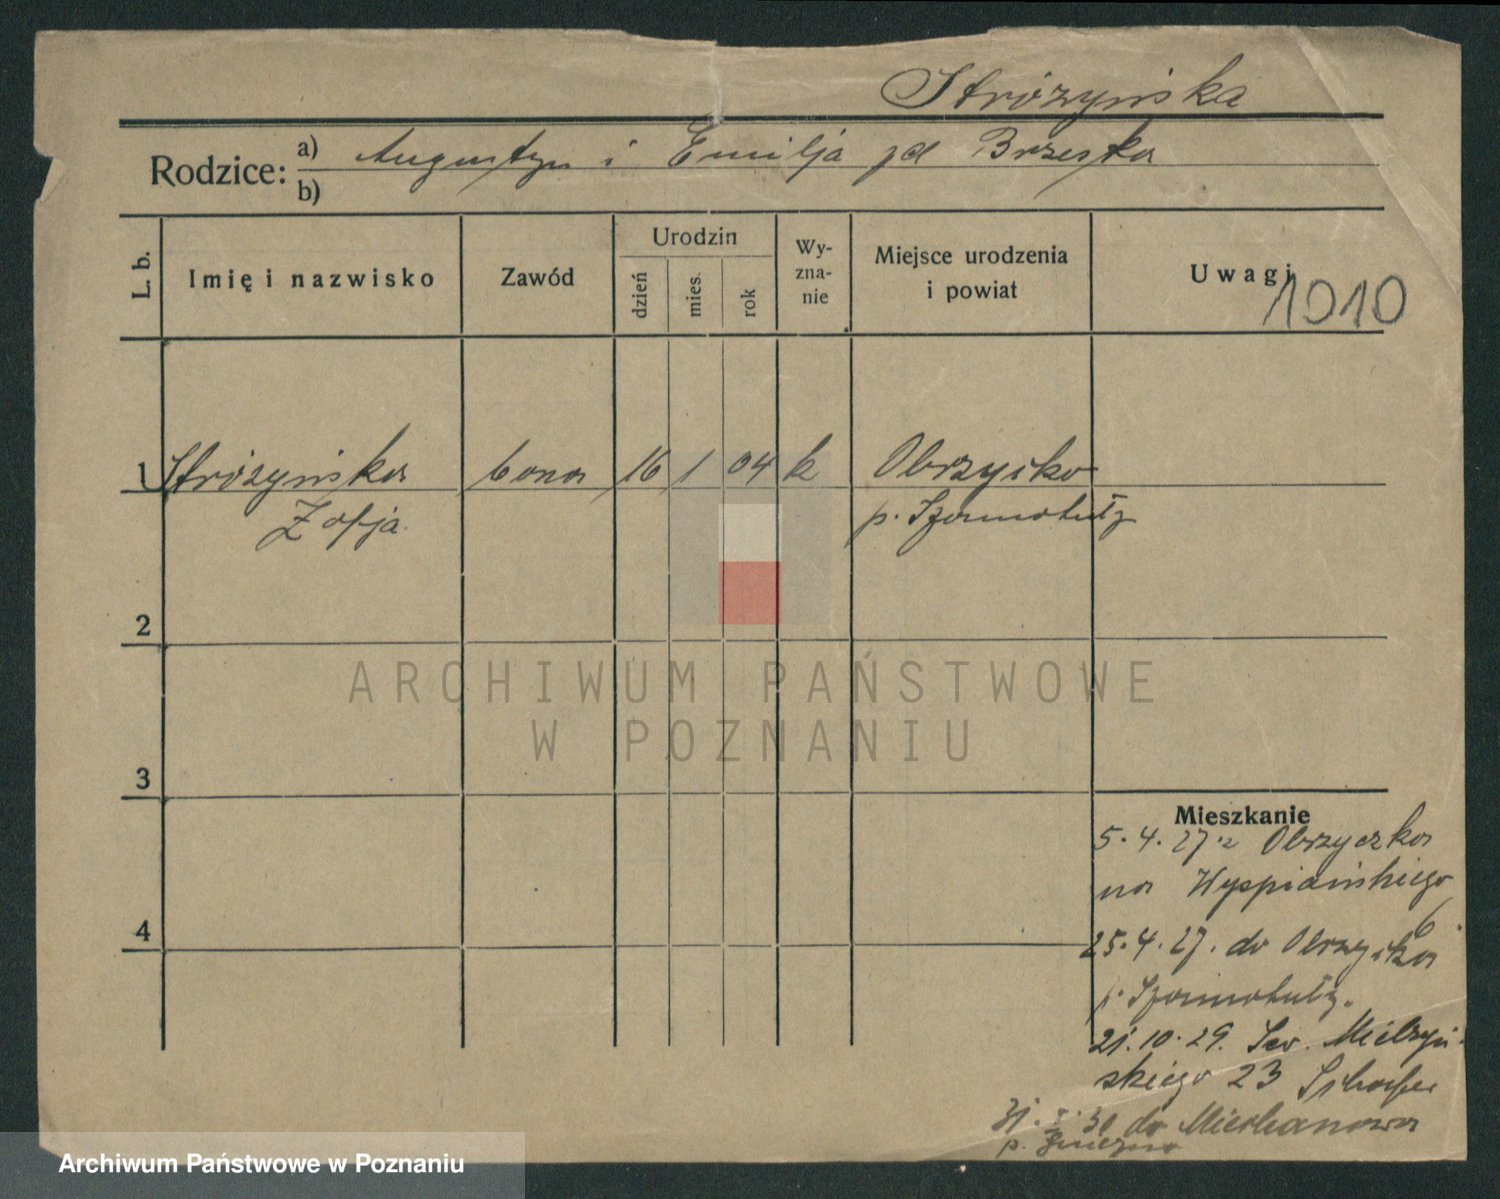 Stróżyńska
Rodzice: a) Augustyn i Emilja zd Brzeska
b)
L. b.
Imię i nazwisko
Zawód
Urodzin
dzień
mies.
rok
Wy-
zna-
nie
Miejsce urodzenia
i powiat
Uwagi
1010
1 Stróżyńska bona 16 1 04 k Obrzycko
Zofja p. Szamotuły
2
ARCHIWUM PAŃSTWOWE
W POZNANIU
3
Mieszkanie
5.4.27 z Obrzycka
na Wyspiańskiego
6.
4
25.4.27. do Obrzycka
p. Szamotuły.
21.10.29. Sew. Mielżyń-
skiego 23
31. 30 do Miechanowa
p. Gniezno
Archiwum Państwowe w Poznaniu